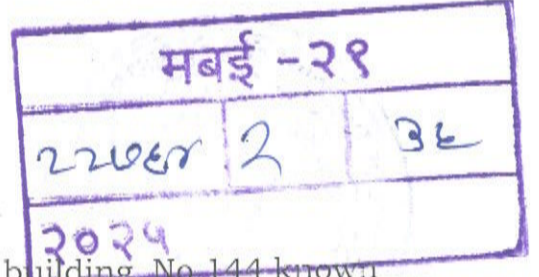 मबई -२१
२२७६४ २ ३६
२०२५
building No 144 known